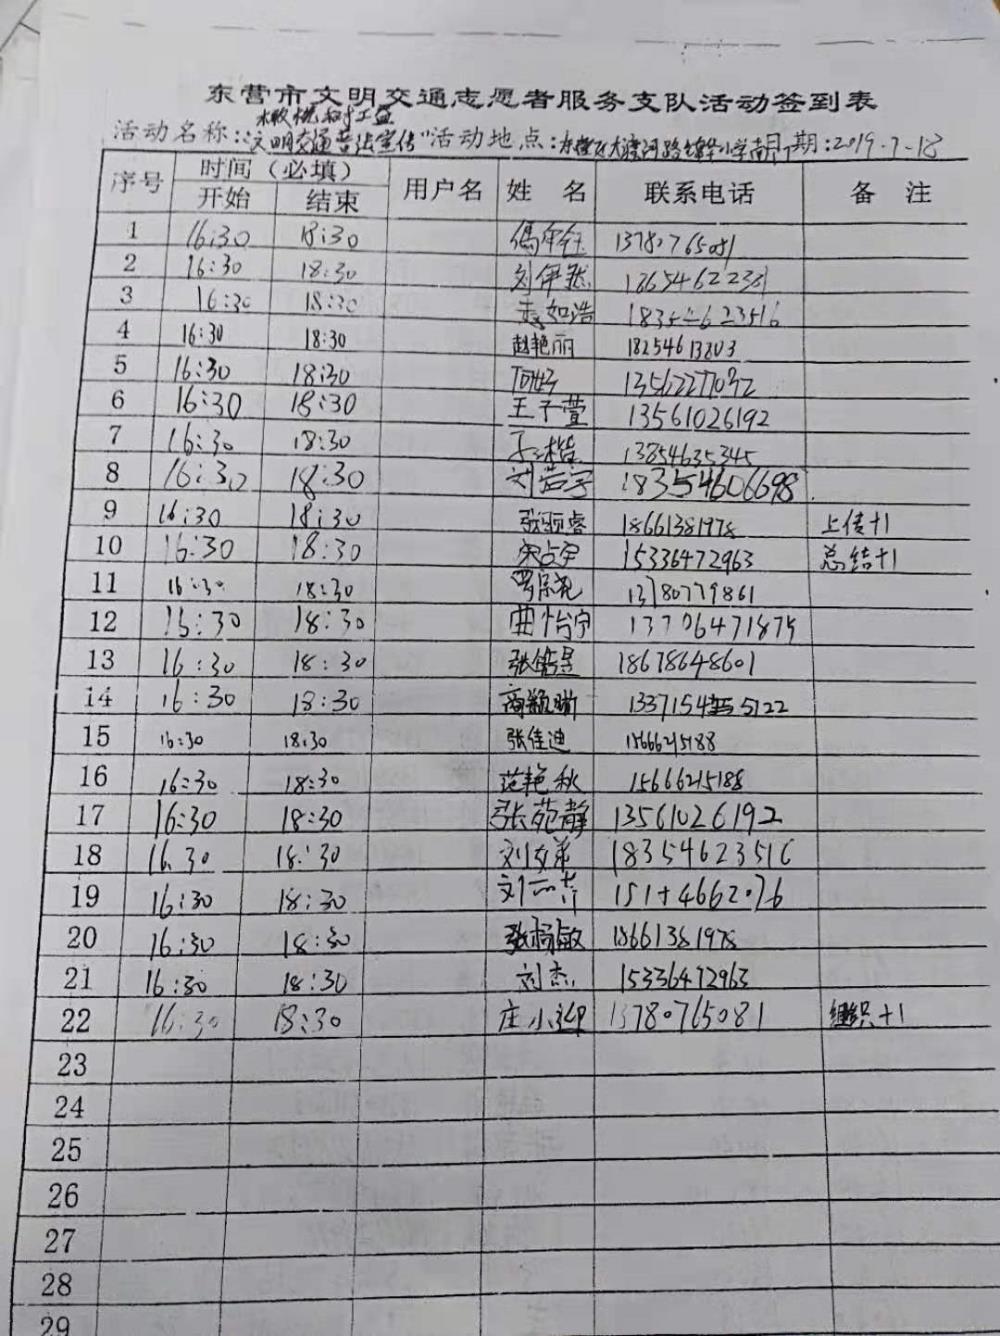 东营市文明交通志愿者服务支队活动签到表
橄榄树公益
活动名称："文明交通普法宣传"活动地点：东营区大渡河路 小学南门 日期：2019-7-18
序号 时间（必填） 用户名 姓 名 联系电话 备 注
开始 结束
1 16:30 18:30 13780765081
2 16:30 18:30 刘伊然 18654622381
3 16:30 18:30 如浩 18354623516
4 16:30 18:30 赵艳丽 18254613803
5 16:30 18:30
6 16:30 18:30 王子萱 13561026192
7 16:30 18:30 13854635345
8 16:30 18:30 刘若宇 18354606698
9 16:30 18:30 张颐睿 18661381978 上传+1
10 16:30 18:30 宋占宇 15336472963 总结+1
11 16:30 18:30 13780779861
12 16:30 18:30 曲怡宁 13706471875
13 16:30 18:30 张皓昱 18678648601
14 16:30 18:30 商颖晰 13371545122
15 16:30 18:30 张佳迪 15666215188
16 16:30 18:30 范艳秋 15666215188
17 16:30 18:30 张苑静 13561026192
18 16:30 18:30 刘友弟 18354623516
19 16:30 18:30
20 16:30 18:30 张杨敏 18661381978
21 16:30 18:30 刘杰 15336472963
22 16:30 18:30 庄小翠 13780765081 组织+1
23
24
25
26
27
28
29